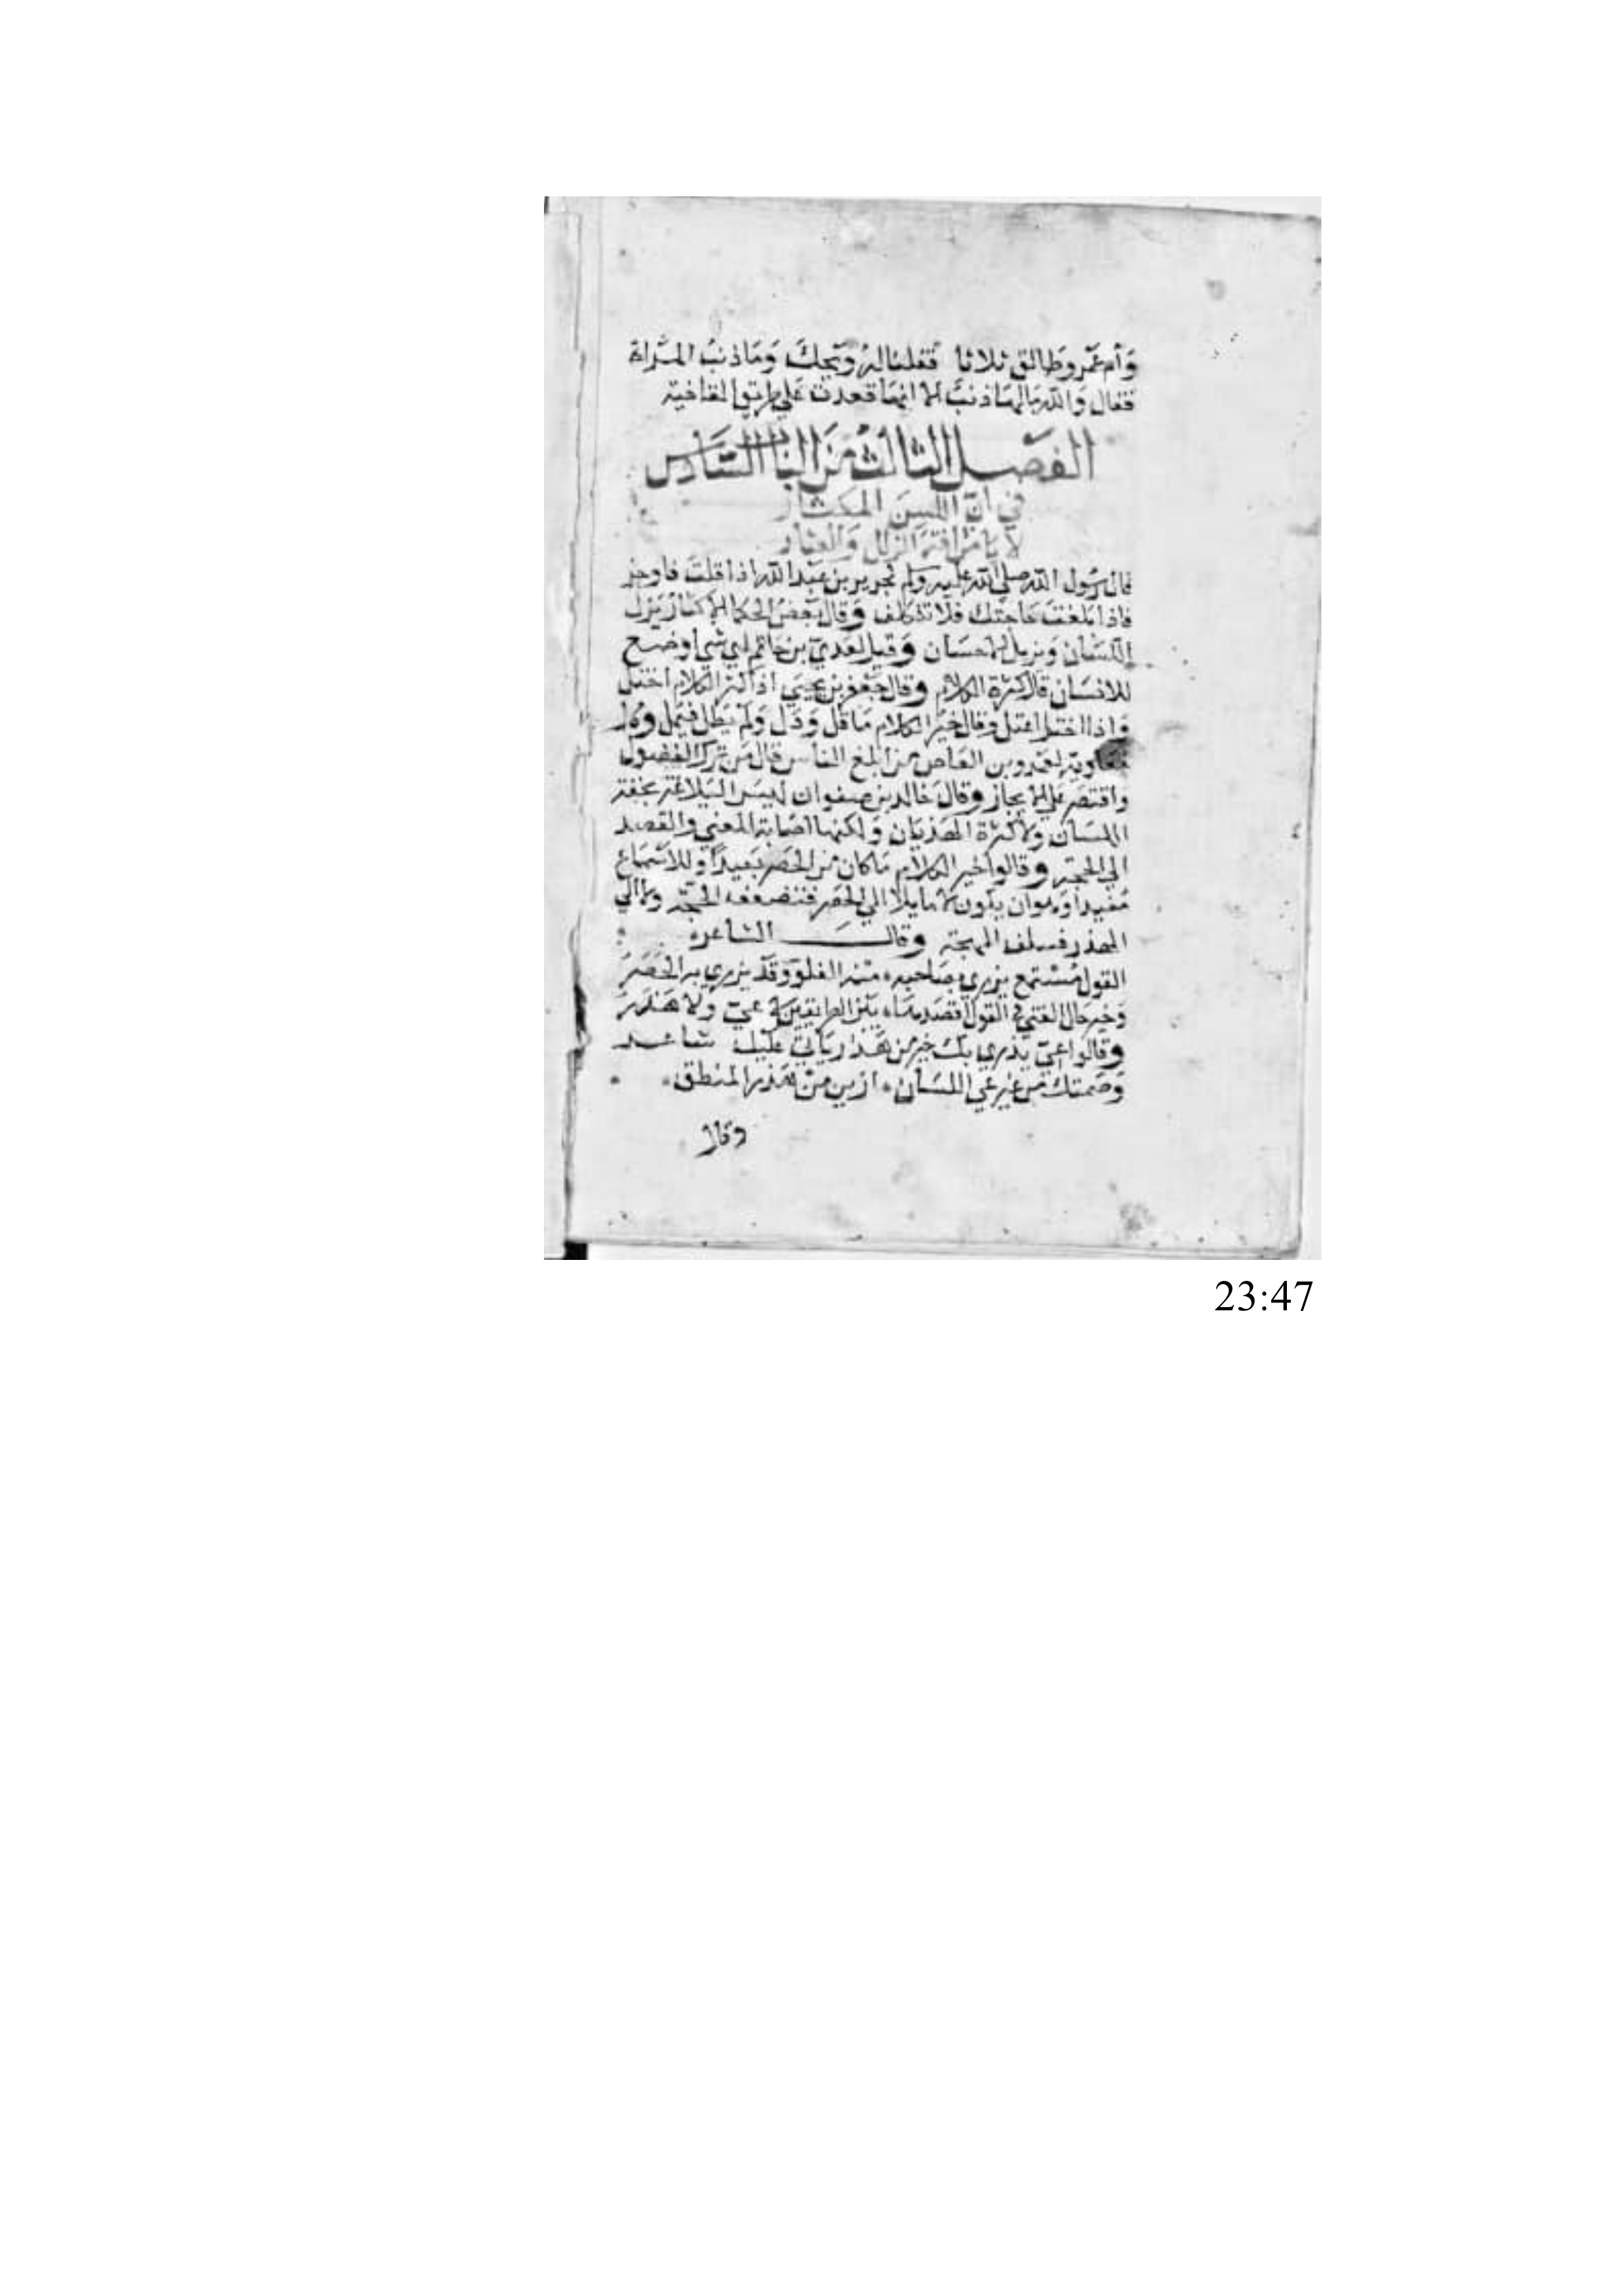 وأم عمرو طالق ثلاثا فقلنا له ويحك وما ذنب المرأة
فقال والله ما لها ذنب الا انها قعدت علي طريق القافية
الفصل الثالث من الباب السادس
في ان اللسن المكثار
لا يامن افة الزلل والعثار
قال رسول الله صلي الله عليه وسلم لجرير بن عبد الله اذا قلت فاوجز
فاذا بلغت حاجتك فلا تتكلف وقال بعض الحكما الاكثار يزل
اللسان ويزيل الاحسان وقيل لعدي بن حاتم اي شي اوضع
للانسان قال كثرة الكلام وقال جعفر بن يحيي اذا كثر الكلام اختل
واذا اختل اعتل وقال خير الكلام ما قل ودل ولم يطل فيمل وقال
معاوية لعمرو بن العاص من ابلغ الناس قال من ترك الفضول
واقتصر علي الايجاز وقال خالد بن صفوان ليس البلاغة بخفة
اللسان ولا كثرة الهذيان ولكنها اصابة المعني والقصد
الي الحجة وقالوا خير الكلام ما كان من الحصر بعيدا وللاسماع
مفيدا وهو ان يكون لا مايلا الي الحصر فتضعف الحجة ولا الي
الهذر فسلف المهجة وقال الشاعر
القول مستمع يزري بصاحبه منه الغلو وقد يزري به الحصر
وخير حال الفتي في القول اقصدها بين الطريقين لا عي ولا هذر
وقالوا عي يزري بك خير من هذر ياتي عليك شاعر
وصمتك من غير عي اللسان ازين من هذر المنطق
وقال
23:47